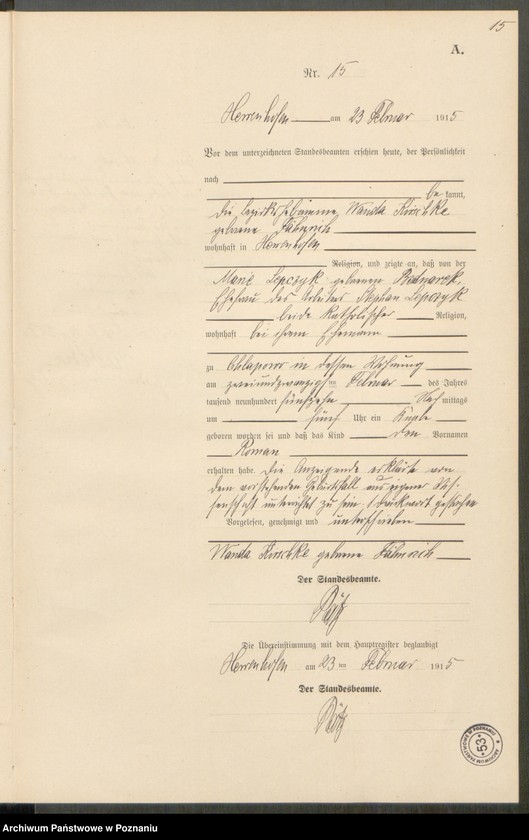 15
A.
Nr. 15
Herrenhofen am 23 Februar 1915
Vor dem unterzeichneten Standesbeamten erschien heute, der Persönlichkeit
nach
be kannt,
die Bezirkshebamme Wanda Kirschke
geborene
wohnhaft in Herrenhofen
Religion, und zeigte an, daß von der
Marie Lepczyk geborenen Bednarek,
Ehefrau des Arbeiters Stephan Lepczyk
beide katholischer Religion,
wohnhaft bei ihrem Ehemann
zu Chlapowo in dessen Wohnung
am zweiundzwanzigsten Februar des Jahres
tausend neunhundert fünfzehn Nachmittags
um fünf Uhr ein Knabe
geboren worden sei und daß das Kind den Vornamen
Roman
erhalten habe. Die Anzeigende erklärte von
dem vorstehenden Geburtsfall aus eigener Wis-
senschaft unterrichtet zu sein. 1 Druckwort gestrichen
Vorgelesen, genehmigt und unterschrieben
Wanda Kirschke geborene
Der Standesbeamte.
Die Übereinstimmung mit dem Hauptregister beglaubigt
Herrenhofen am 23 ten Februar 1915
Der Standesbeamte.
ARCHIWUM PAŃSTWOWE W POZNANIU
53
Archiwum Państwowe w Poznaniu